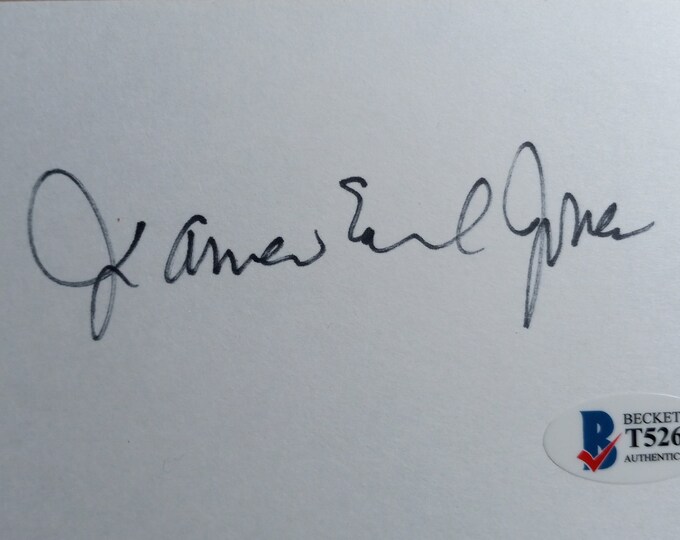 James Earl Jones
BECKET
T526
AUTHENTIC